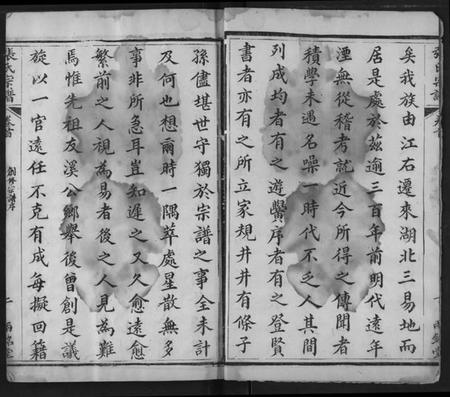 矣我族由江右遷來湖北三易地而
居是處於茲逾三百年前明代遠年
湮無從稽考就近今所得之傳聞者
積學未遇名噪一時代不乏人其間
列成均者有之遊黌序者有之登賢
書者亦有之所立家規井井有條子
孫儘堪世守獨於宗譜之事全未計
及何也想爾時一隅萃處星散無多
事非所急耳豈知遲之又久愈遠愈
繁前之人視為易者後之人見為難
焉惟先祖友溪公鄉舉後曾創是議
旋以一官遠任不克有成每擬回籍
張氏宗譜
卷首
二